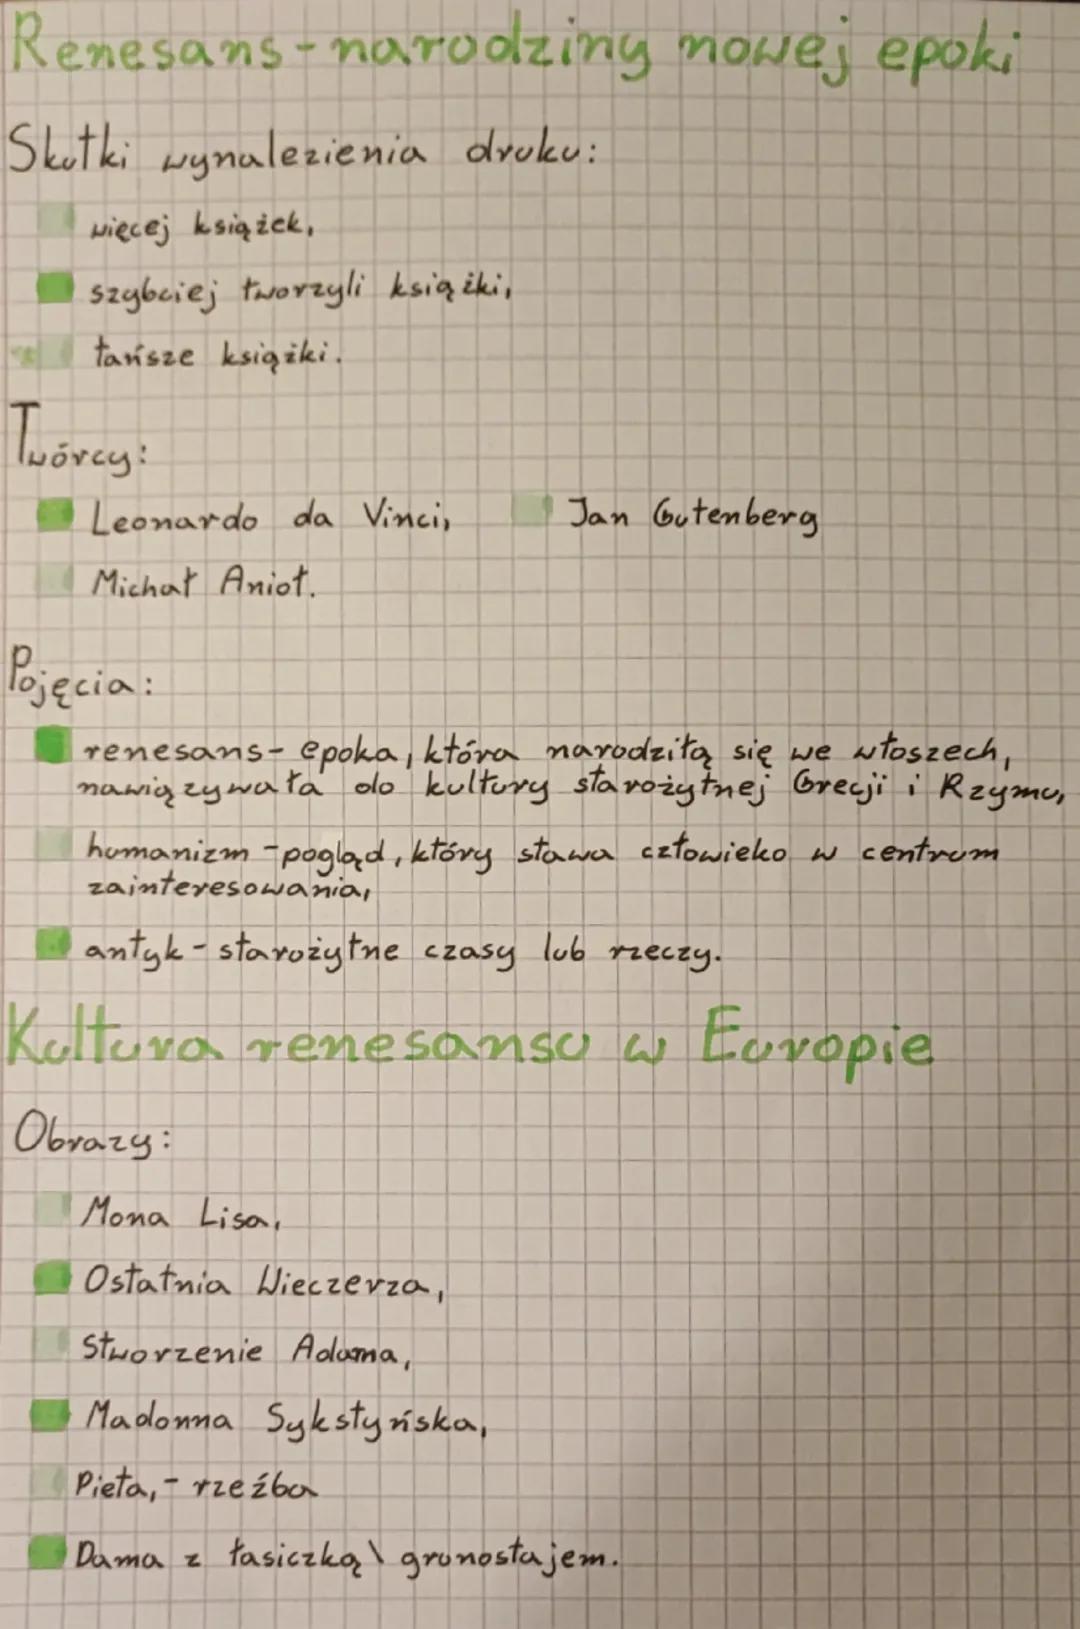 Renesans - narodziny nowej epoki
Skutki wynalezienia druku:
więcej książek,
szybciej tworzyli książki,
tańsze książki.
Twórcy:
Leonardo da Vinci, Jan Gutenberg
Michał Anioł.
Pojęcia:
renesans - epoka, która narodziłą się we włoszech,
nawiązywała do kultury starożytnej Grecji i Rzymu,
humanizm - pogląd, który stawa człowieko w centrum
zainteresowania,
antyk - starożytne czasy lub rzeczy.
Kultura renesansu w Europie
Obrazy:
Mona Lisa,
Ostatnia Wieczerza,
Stworzenie Adama,
Madonna Sykstyńska,
Pieta, - rzeźba
Dama z łasiczką \ gronostajem.